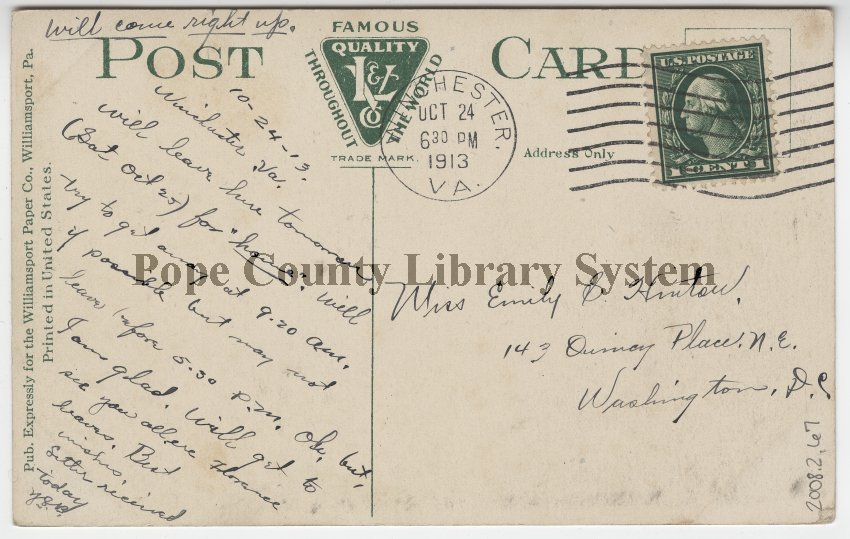 will come right up.
POST CARD
FAMOUS
QUALITY
THROUGHOUT
THE WORLD
TRADE MARK.
WINCHESTER.
OCT 24
630 PM
1913
VA.
U.S. POSTAGE
1 CENT 1
Address Only
Pub. Expressly for the Williamsport Paper Co., Williamsport, Pa.
Printed in United States.
10-24-13.
Winchester Va.
will leave here tomorrow
(Sat Oct 25) for "home". Will
try to get away at 9.20 a.m.
if possible but may not
leave before 5.30 p.m. Oh, but,
I am glad. Will get to
see you before Florence
leaves. Best
wishes.
Letter received
today
Miss Emily C Hinton.
143 Quincy Place. N.E.
Washington, D.C
2008.2.67
Pope County Library System